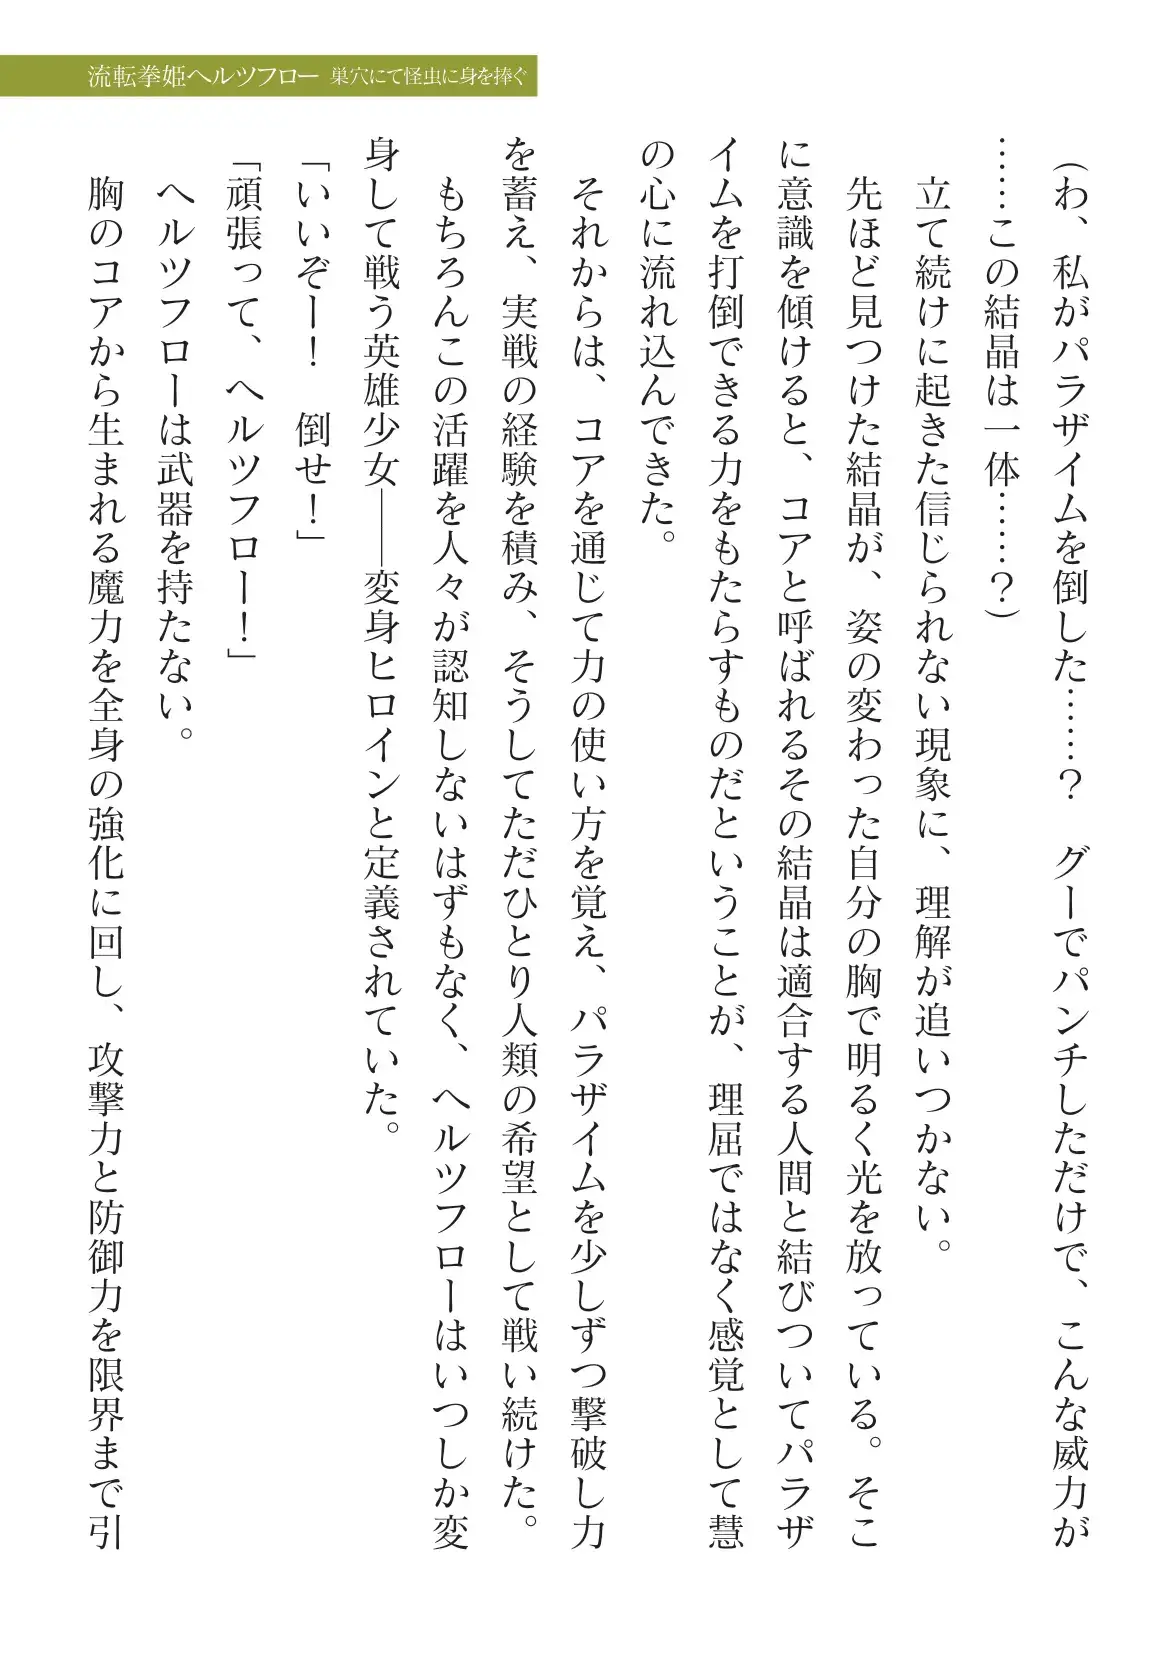 流転拳姫ヘルツフロー 巣穴にて怪虫に身を捧ぐ
（わ、私がパラザイムを倒した……？　グーでパンチしただけで、こんな威力が
……この結晶は一体……？）
　立て続けに起きた信じられない現象に、理解が追いつかない。
　先ほど見つけた結晶が、姿の変わった自分の胸で明るく光を放っている。そこ
に意識を傾けると、コアと呼ばれるその結晶は適合する人間と結びついてパラザ
イムを打倒できる力をもたらすものだということが、理屈ではなく感覚として慧
の心に流れ込んできた。
　それからは、コアを通じて力の使い方を覚え、パラザイムを少しずつ撃破し力
を蓄え、実戦の経験を積み、そうしてただひとり人類の希望として戦い続けた。
　もちろんこの活躍を人々が認知しないはずもなく、ヘルツフローはいつしか変
身して戦う英雄少女――変身ヒロインと定義されていた。
「いいぞー！　倒せ！」
「頑張って、ヘルツフロー！」
　ヘルツフローは武器を持たない。
　胸のコアから生まれる魔力を全身の強化に回し、攻撃力と防御力を限界まで引